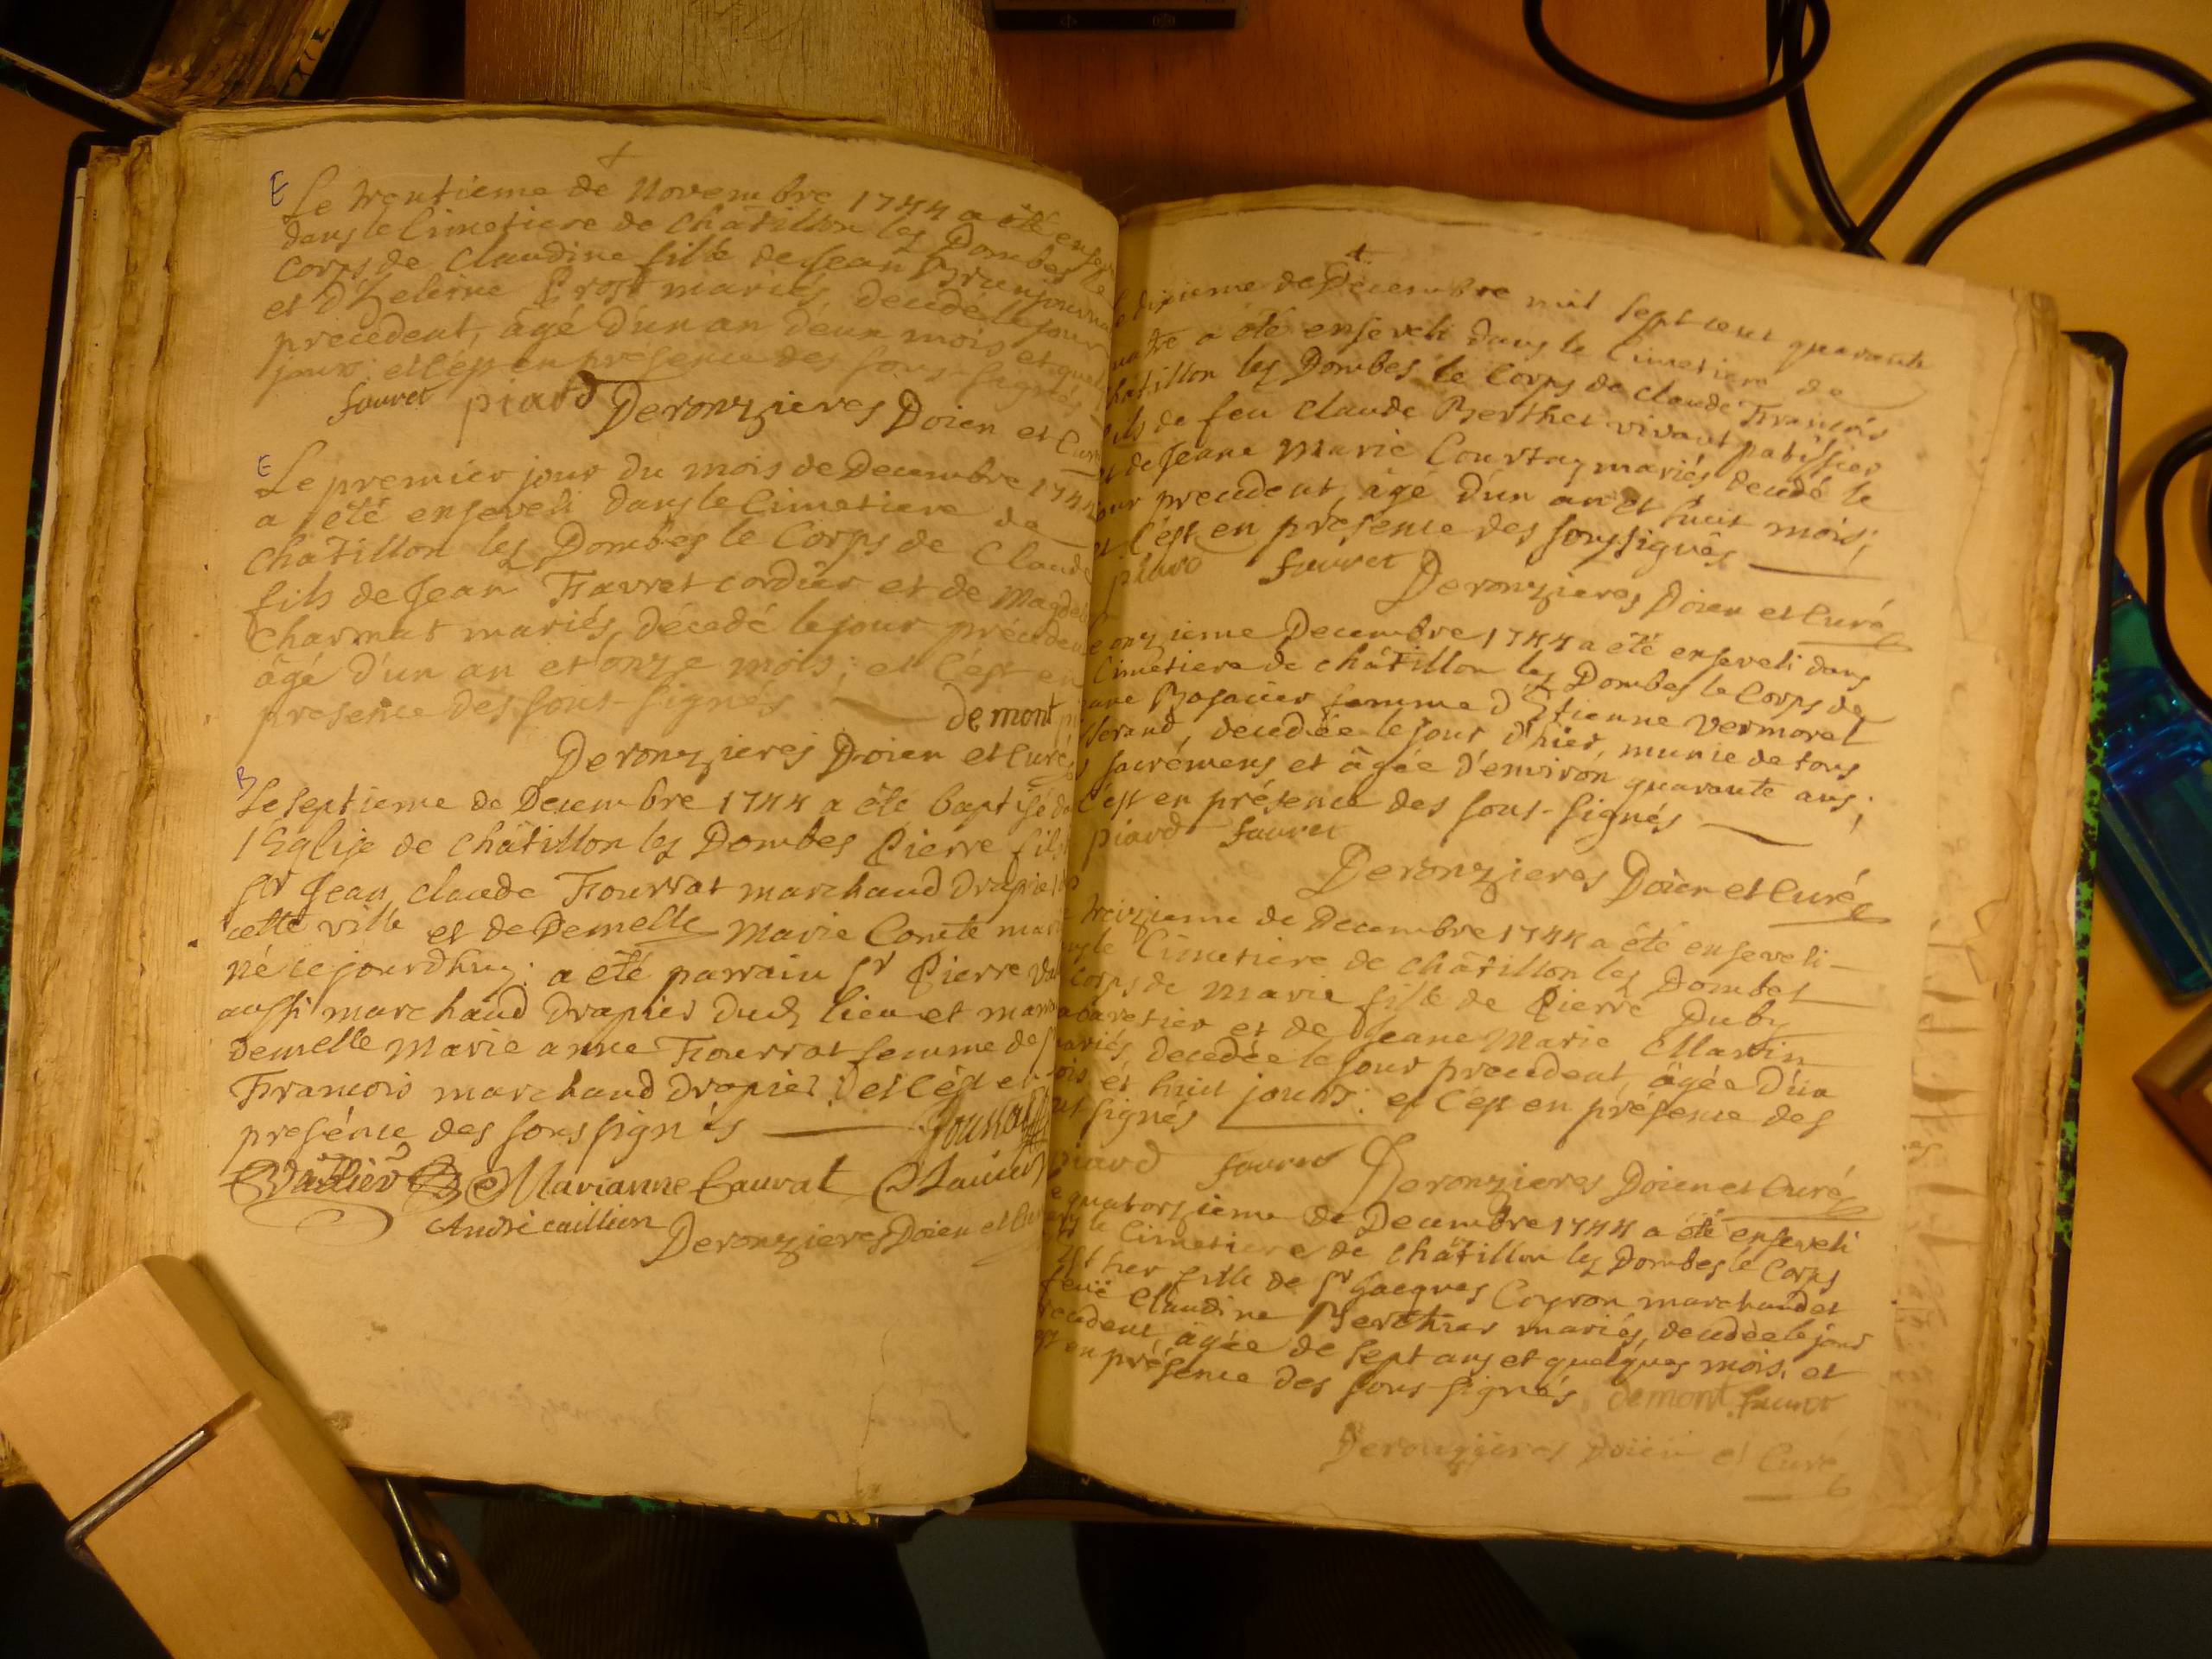 E Le trentieme de Novembre 1744 a été ensev
dans le Cimetiere de Châtillon les Dombes le
Corps de Claudine fille de Jean Brun journa
et d'heleine Prost mariés, decedé le jour
precedent, âgé d'un an deux mois et quel
jours: et c'est en présence des sous-signés
fauret piard Deronzieres Doien et Curé
E Le premier jour du mois de Decembre 1744
a été enseveli dans le Cimetiere de
Châtillon les Dombes le Corps de Claude
fils de Jean Favret cordier et de Magdel
Charmat mariés, décedé le jour précedent
âgé d'un an et onze mois; et c'est en
presence des sous-signés demont
Deronzieres Doien et Curé
B Le septieme de Decembre 1744 a été baptisé da
l'Eglise de Châtillon les Dombes Pierre fils
Sr Jean Claude Fourrat marchand Drapier
cette ville et de Demelle Marie Comte mar
né cejourdhuy: a été parrain Sr Pierre
aussi marchand Drapier dud. lieu et marr
demelle Marie anne Fourrat femme de Sr
Francois marchand Drapier; et c'est en
presénce des sous signés
Marianne
André caillion Deronzieres Doien et Curé
dixieme de Decembre mil sept cent quarante
quatre a été enseveli dans le Cimetiere de
Chatillon les Dombes le Corps de Claude François
fils de feu Claude Berthet vivant patissier
et de Jeane Marie Courtay mariés decedé le
jour precedent, âgé d'un an et huit mois;
et c'est en présence des soussignés
piard fauret Deronzieres Doien et Curé
Le onzieme Decembre 1744 a été enseveli dans
Cimetiere de Châtillon les Dombes le Corps de
femme d'Etienne Vermorel
decedée le jour d'hier, munie de tous
sacrémens, et âgée d'environ quarante ans;
c'est en présence des sous-signés
piard fauret
Deronzieres Doien et Curé
treizieme de Decembre 1744 a été enseveli
dans le Cimetiere de Châtillon les Dombes
Corps de Marie fille de Pierre Duby
cabaretier et de Jeane Marie Martin
mariés, decedée le jour precedent, âgée d'un
mois et huit jours: et c'est en présence des
sous signés
piard fauret Deronzieres Doien et Curé
Le quatorzieme de Decembre 1744 a été enseveli
dans le Cimetiere de Châtillon les Dombes le Corps
Esther fille de Sr Jacques Coyron marchand et
feuë Claudine Berthier mariés, decedée le jour
precedent, âgée de sept ans et quelques mois, et
c'est en présence des sous-signés demont fauret
Deronzieres Doien et Curé